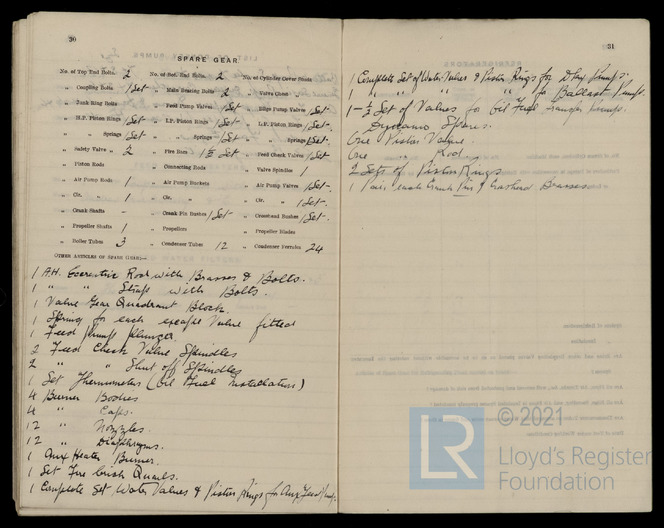 30
SPARE GEAR
No. of Top End Bolts. 2 No. of Bot. End Bolts. 2 No. of Cylinder Cover Studs
„ Coupling Bolts 1 Set „ Main Bearing Bolts 2 „ Valve Chest „
„ Junk Ring Bolts „ Feed Pump Valves 1 Set „ Bilge Pump Valves 1 Set
„ H.P. Piston Rings 1 Set „ I.P. Piston Rings 1 Set „ L.P. Piston Rings 1 Set
„ „ Springs 1 Set „ „ Springs 1 Set „ „ Springs 1 Set
„ Safety Valve „ 2 „ Fire Bars 1/2 Set „ Feed Check Valves 1 Set
„ Piston Rods „ Connecting Rods „ Valve Spindles 1
„ Air Pump Rods 1 „ Air Pump Buckets „ Air Pump Valves 1 Set
„ Cir. „ 1 „ Cir. „ „ Cir. „ 1 Set
„ Crank Shafts - „ Crank Pin Bushes 1 Set „ Crosshead Bushes 1 Set
„ Propeller Shafts 1 „ Propellers „ Propeller Blades
„ Boiler Tubes 3 „ Condenser Tubes 12 „ Condenser Ferrules 24
OTHER ARTICLES OF SPARE GEAR:—
1 A.H. Eccentric Rod with Brasses & Bolts.
1 „ „ Strap with Bolts.
1 Valve Gear Quadrant Block.
1 Spring for each escape Valve fitted
1 Feed Pump plunger.
2 Feed Check Valve Spindles
2 „ „ Shut off Spindles
1 Set Thermometers (Oil Fuel Installation)
4 Burner Bodies
4 „ Caps.
12 „ Nozzles.
12 „ Diaphragms.
1 Aux Heater Burner.
1 Set Fire brick Quarls.
1 Complete Set Water Valves & Piston Rings for Aux Feed Pump.
31
1 Complete Set of Water Valves & Piston Rings for D. Aux Pumps.
1 „ „ „ „ „ for Ballast Pump.
1 - 1/2 Set of Valves for Oil Fuel Transfer Pumps.
Dynamo Spares.
One Piston Valve
One „ Rod
2 Sets of Piston Rings
1 Pair each Crank Pin & Crosshead Brasses
© 2021
LR
Lloyd's Register
Foundation